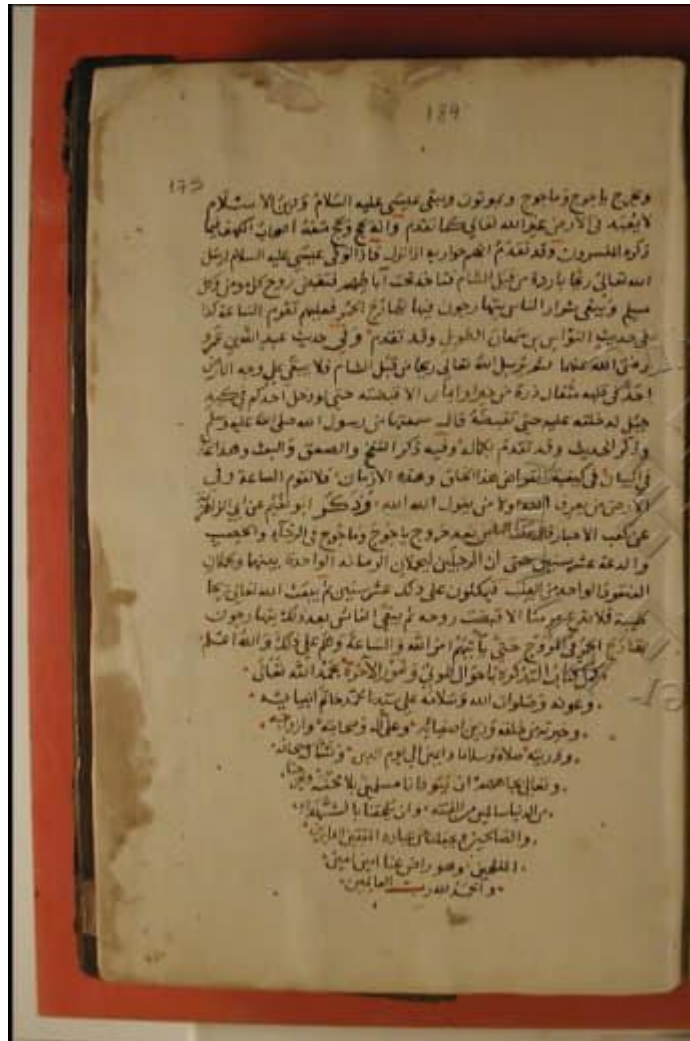 184
175
ويخرج ياجوج وماجوج ويموتون ويبقى عيسى عليه السلام ودين الاسلام
لا يعبد في الارض غير الله تعالى كما تقدم وانه يحج ويحج معه اصحاب الكهف فيما
ذكره المفسرون وقد تقدم انهم حواريه اذا نزل فاذا توفى عيسى عليه السلام ارسل
الله تعالى ريحا باردة من قبل الشام فتاخذ تحت آباطهم فتقبض روح كل مومن وكل
مسلم ويبقى شرار الناس يتهارجون فيها تهارج الحمر فعليهم تقوم الساعة كذا
في حديث النواس بن سمعان الطويل وقد تقدم وفي حديث عبد الله بن عمرو
رضى الله عنهما ثم يرسل الله تعالى ريحا من قبل الشام فلا يبقى على وجه الارض
احد في قلبه مثقال ذرة من ايمان الا قبضته حتى لو دخل احدكم في كبد
جبل لدخلته عليه حتى تقبضه قال سمعتها من رسول الله صلى الله عليه وسلم
وذكر الحديث وقد تقدم بكماله وفيه ذكر النفخ والصعق والبعث وهذا
في البيان في كيفية انقراض هذا الخلق وهذه الازمان فلا تقوم الساعة وفي
الارض من يعرف الله ولا من يقول الله الله وذكر ابو نعيم عن ابي الزاهرية
عن كعب الاحبار قال الناس بعد خروج ياجوج وماجوج في الرخاء والخصب
والدعة عشر سنين حتى ان الرجلين ليحملان الرمانة الواحدة بينهما ويحملان
العنقود الواحد من العنب فيمكثون على ذلك عشر سنين ثم يبعث الله تعالى ريحا
طيبة فلا تدع مومنا الا قبضت روحه ثم يبقى الناس بعد ذلك يتهارجون
تهارج الحمر في المروج حتى ياتيهم امر الله والساعة وهم على ذلك والله اعلم
كمل كتاب التذكرة باحوال الموتى وامور الآخرة بحمد الله تعالى
وعونه وصلوات الله وسلامه على سيدنا محمد خاتم انبيائه
وخيرته من خلقه وزين اصفيائه وعلى آله وصحابته وازواجه
وذريته صلاة وسلاما دايمين الى يوم الدين ونسال سبحانه
وتعالى ان يتوفانا مسلمين بلا محنة
من الدنيا سالمين من الفتنة وان يلحقنا بالشهداء
والصالحين ويجعلنا من عباده المتقين
المفلحين وهو راض عنا امين امين
والحمد لله رب العالمين